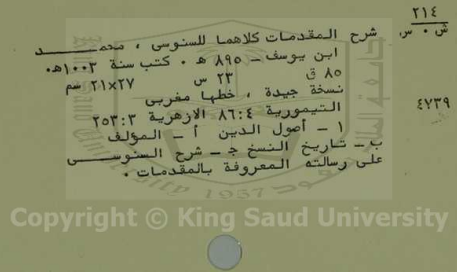 ٢١٤
ش ٠ س
شرح المقدمات كلاهما للسنوسى ، محمد
ابن يوسف - ٨٩٥ هـ ٠ كتب سنة ١٠٠٣هـ٠
٨٥ ق ٢٣ س ٢١×٢٧ سم
نسخة جيدة ، خطها مغربى
٤٧٣٩
التيمورية ٨٦:٤ الازهرية ٢٥٣:٣
١ - أصول الدين أ - المؤلف
ب - تاريخ النسخ جـ - شرح السنوسى
على رسالته المعروفة بالمقدمات ٠
1957
Copyright © King Saud University